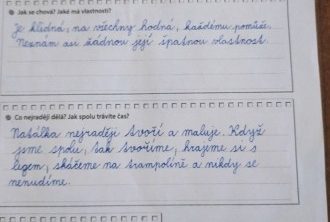 Jak se chová? Jaké má vlastnosti?
Je klidná, na všechny hodná, každému pomůže.
Neznám asi žádnou její špatnou vlastnost.
Co nejraději dělá? Jak spolu trávíte čas?
Natálka nejraději tvoří a maluje. Když
jsme spolu, tak tvoříme, hrajeme si s
legem, skáčeme na trampolíně a nikdy se
nenudíme.